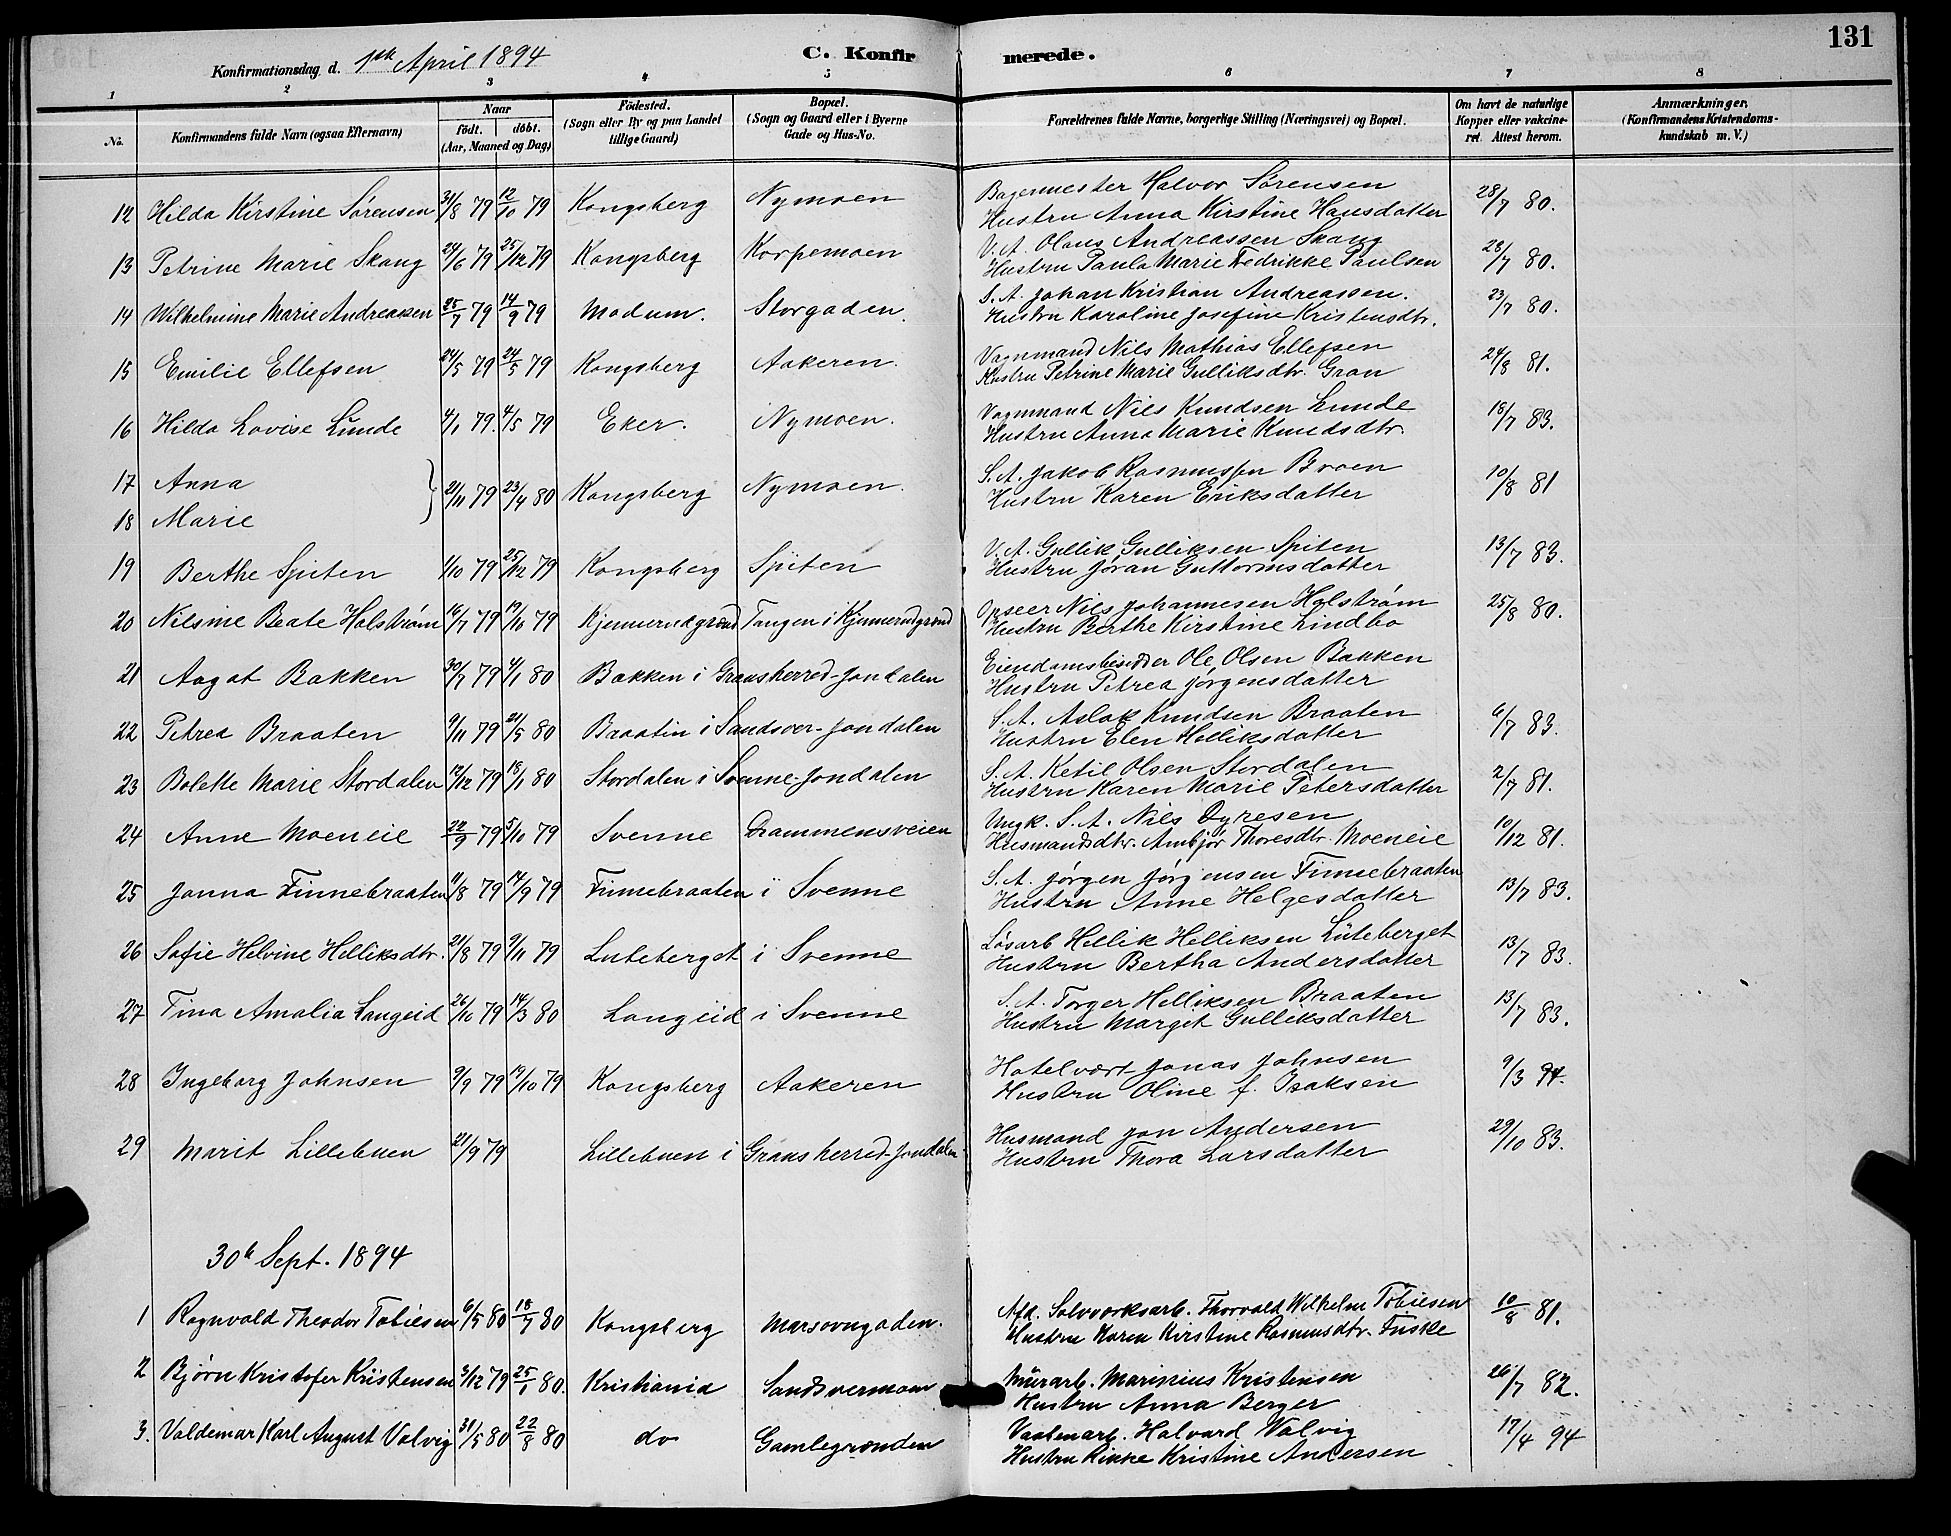 131
Konfirmationsdag d. 1ste April 1894
C. Konfirmerede.
1 2 3 4 5 6 7 8
No. | Konfirmandens fulde Navn (ogsaa Efternavn) | Naar født. døbt. (Aar, Maaned og Dag) | Fødested. (Sogn eller By og paa Landet tillige Gaard) | Bopæl. (Sogn og Gaard eller i Byerne Gade og Hus-No. | Forældrenes fulde Navne, borgerlige Stilling (Næringsvei) og Bopæl. | Om havt de naturlige Kopper eller vakcineret. Attest herom. | Anmærkninger. (Konfirmandens Kristendomskundskab m. V.)
12 Hilda Kirstine Sørensen 31/8 79 12/10 79 Kongsberg Nymoen Bagermester Halvor Sørensen 28/7 80.
Hustru Anna Kirstine Hansdatter
13 Petrine Marie Skaug 24/6 79 25/12 79 Kongsberg Korpemoen V. A. Olaus Andreassen Skaug 28/7 80.
Hustru Paula Marie Fedrikke Paulsen
14 Wilhelmine Marie Andreassen 25/7 79 14/9 79 Modum. Storgaden. S. A. Johan Kristian Andreassen. 23/7 80.
Hustru Karoline Josefine Kristensdtr.
15 Emilie Ellefsen 24/5 79 24/5 79 Kongsberg Aakeren. Vognmand Nils Mathias Ellefsen 24/8 81.
Hustru Petrine Marie Gulliksdtr. Gran
16 Hilda Lovise Lunde 4/1 79. 4/5 79 Eker. Nymoen. Vognmand Nils Knudsen Lunde 18/7 83.
Hustru Anna Marie Knudsdtr.
17 Anna } 21/11 79 23/4 80 Kongsberg Nymoen. S. A. Jakob Rasmussen Broen 10/8 81
18 Marie Hustru Karen Eriksdatter
19 Berthe Spiten 1/10 79 25/12 79 Kongsberg Spiten V. A. Gullik Gulliksen Spiten 13/7 83.
Hustru Jøran Guttormsdatter
20 Nilsine Beate Holstrøm 16/7 79 19/10 79 Kjennerudgrænd Tangen i Kjennerudgrænd Opseer Nils Johannesen Holstrøm 25/8 80.
Hustru Berthe Kirstine Lindbo
21 Aagat Bakken 30/7 79 4/1 80 Bakken i Gransherred-Jondalen Eiendomsbesidder Ole Olsen Bakken
Hustru Petrea Jørgensdatter
22 Petrea Braaten 9/11 79 21/5 80 Braatin i Sandsver-Jondalen S. A. Aslak Knudsen Braaten 6/7 83.
Hustru Elen Helliksdatter
23 Bolette Marie Stordalen 12/12 79 18/1 80 Stordalen i Svenne-Jondalen S. A. Ketil Olsen Stordalen 2/7 81.
Hustru Karen Marie Petersdatter
24 Anne Moeneie 22/9 79 5/10 79 Svenne Drammensveien Ungk. S. A. Nils Dyresen 10/12 81.
Husmandsdtr. Ambjør Thoresdtr. Moeneie
25 Janna Finnebraaten 11/8 79 14/9 79 Finnebraaten i Svenne S. A. Jørgen Jørgensen Finnebraaten 13/7 83.
Hustru Anne Helgesdatter
26 Sofie Helvine Helliksdtr. 21/8 79 9/11 79 Luteberget i Svenne Løsarb Hellik Helliksen Luteberget 13/7 83.
Hustru Bertha Andersdatter
27 Tina Amalia Langeid 26/10 79 14/3 80 Langeid i Svenne S. A. Torger Helliksen Braaten 13/7 83.
Hustru Marget Gulliksdatter
28 Ingeborg Johnsen 9/9 79 19/10 79 Kongsberg Aakeren Hotelvært Jonas Johnsen 9/3 94.
Hustru Oline f. Isaksen
29 Marit Lillebuen 21/9 79 Lillebuen i Gransherred-Jondalen Husmand Jon Andersen 29/10 83.
Hustru Thora Larsdatter
30te Sept. 1894
1 Ragnvald Theodor Tobiesen 6/5 80 18/7 80 Kongsberg Marsovngaden. Afd. Sølvverksarb. Thorvald Wilhelm Tobiesen 10/8 81.
Hustru Karen Kirstine Rasmusdtr. Fuske
2 Bjørn Kristofer Kristensen 3/12 79 25/1 80. Kristiania Sandsvermoen Murarb. Marinius Kristensen 26/7 82.
Hustru Anna Berger
3. Valdemar Karl August Valvig 31/5 80 22/8 80 do Gamlegrænden Vaabenarb. Halvard Walvig 17/4 94
Hustru Rikke Kristine Andersen